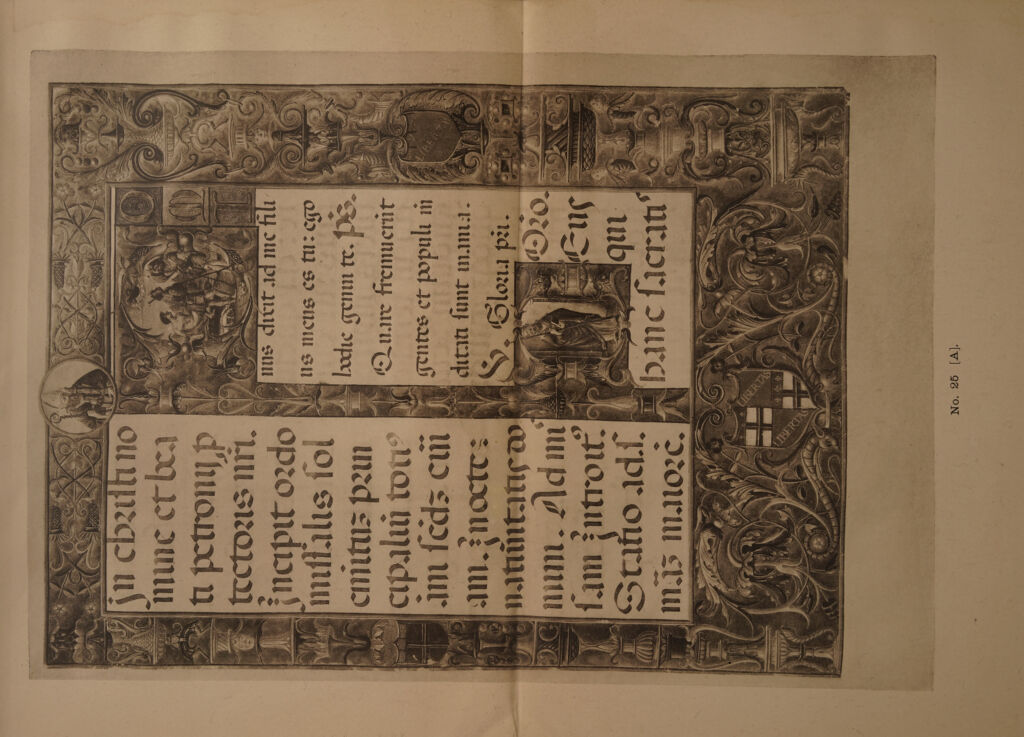 jn chruſti no
mine et bea
ti petronij p
tectoris nri.
jncipit ordo
miſſalis ſol
enitatꝫ prin
cipaliu totiꝰ
ani ſcdꝫ cu
jn nocte
natiuitatis do
mini. Ad mi
ſam jntroit.
Statio ad ſ.
maiore.
nus dixit ad me fili
us meus es tu: ego
hodie genui te. ps.
Quare fremuerit
gentes et populi in
ditati ſunt inania.
Gloria pri.
Oro.
Eus
qui
hanc ſacratiſ
LIBERTAS
LIBERTAS
No. 25 [A].